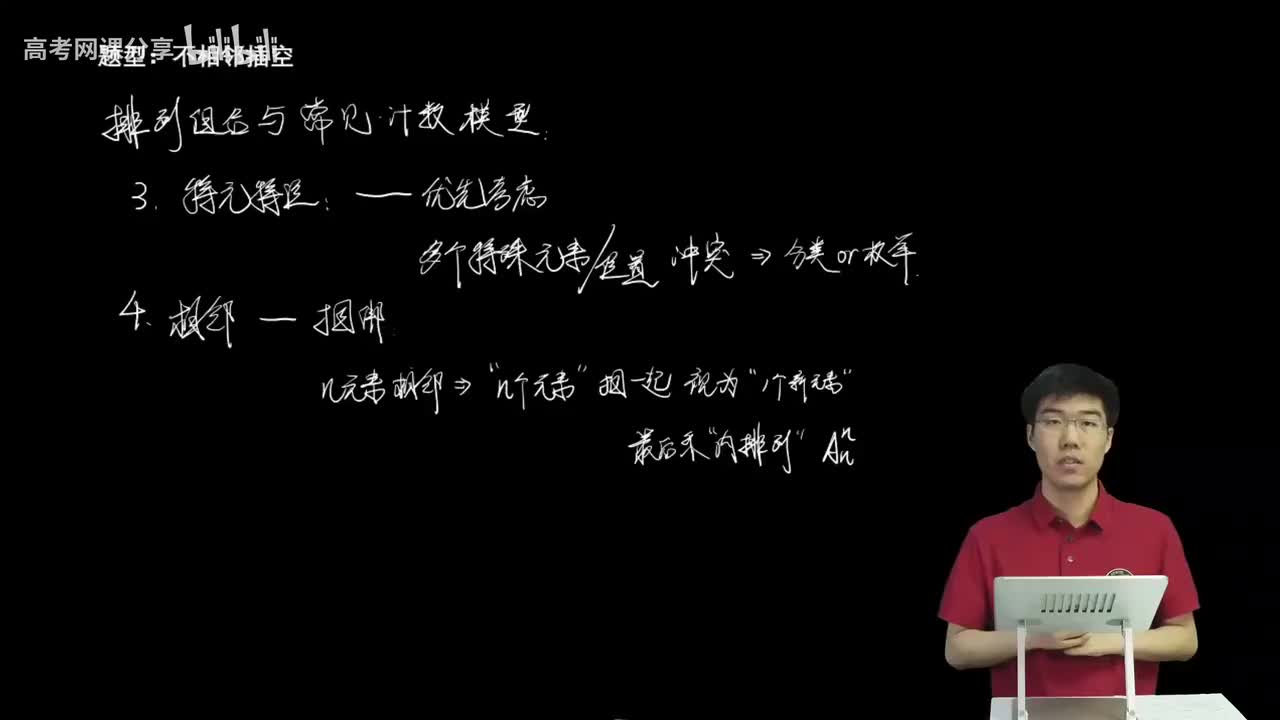 高考网课分享 bilibili
题型：不相邻插空
排列组合与常见计数模型.
3. 特元特位: — 优先考虑
多个特殊元素/位置 冲突 ⇒ 分类 or 权羊.
4. 相邻 — 捆绑.
n元素相邻 ⇒ "n个元素" 捆一起 视为 "1个新元素"
最后乘"内排列" Aₙⁿ